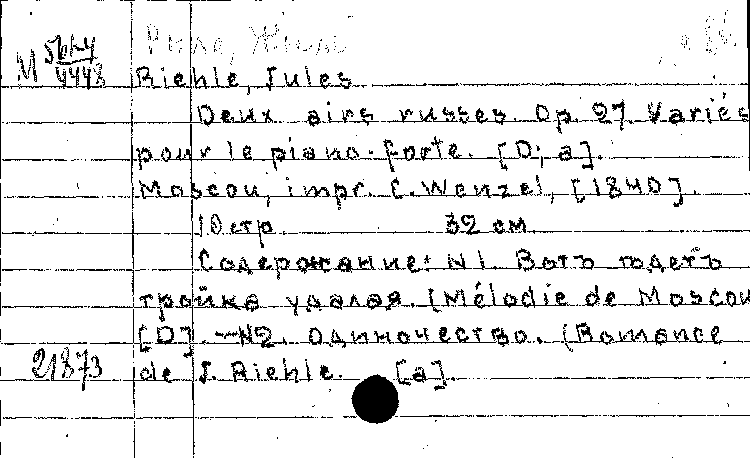 Риле, Жюль
M 4448
Riehle, Jules
Deux airs russes. Op. 27. Variés
pour le piano-forte. [D; a].
Moscou, impr. C. Wenzel, [1840].
10 стр. 32 см.
Содержание: N1. Вотъ годетъ
тройка удалая. (Mélodie de Moscou
[D]. — N2. Одиночество. (Romance
de J. Riehle. [a].
21873